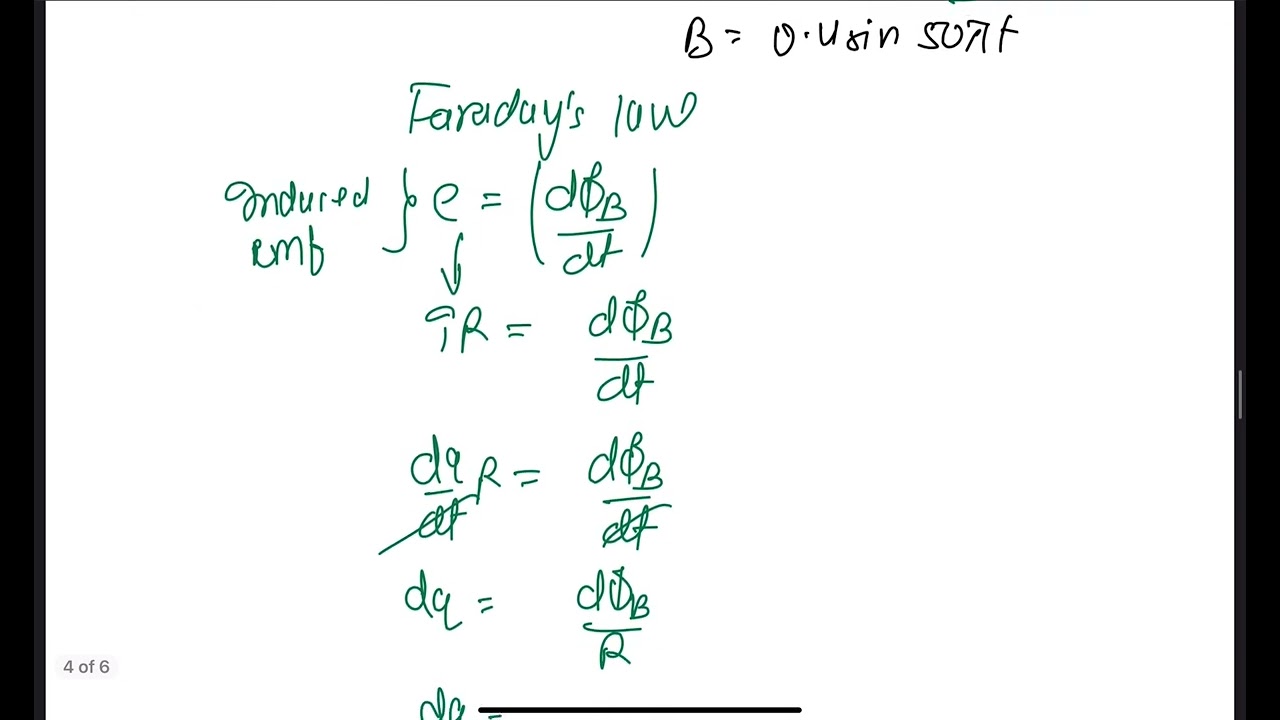 B = 0.4 sin 50πt
Faraday's law
Induced emf } e = (dϕ_B/dt)
iR = dϕ_B/dt
dq/dt R = dϕ_B/dt
dq = dϕ_B/R
4 of 6
dq =